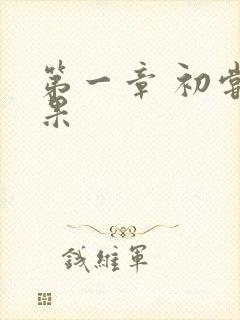 第一章 初尝
果
钱维军